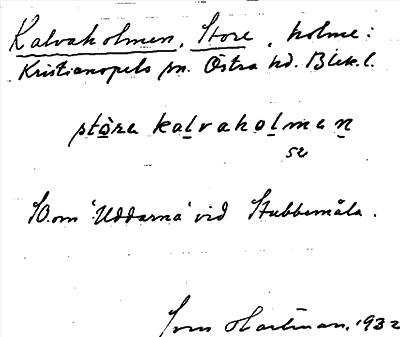 Kalvaholmen, Store, holme:
Kristianopels sn. Östra hd. Blek.l.
stòra kalvaholmen
52
SO. om 'Uddarna' vid Stubbemåla.
Sven Hartman, 1932